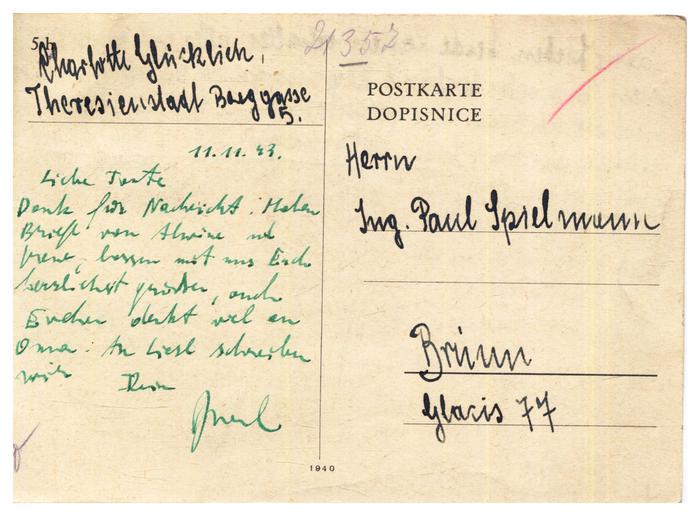 Charlotte Glücklich,
Theresienstadt Berggasse
5.
21352
POSTKARTE
DOPISNICE
Herrn
Ing. Paul Spielmann
Brünn
Glacis 77
11.11.43.
Liebe Tante
Dank für Nachricht. Haben
Brief von Alwine
lassen mit uns Euch
herzlichst grüßen, auch
Evchen denkt viel an
Oma. An Liesl schreiben
wir Dein
1940